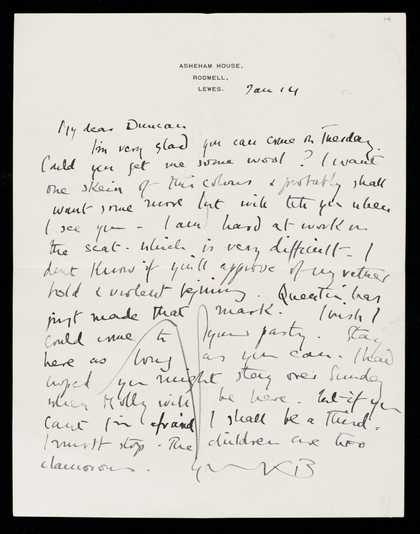 ASHEHAM HOUSE,
RODMELL,
LEWES.
Jan 14
My dear Duncan
I'm very glad you can come on Tuesday.
Could you get me some wool? I want
one skein of this colour & probably shall
want some more but will tell you when
I see you - I am hard at work on
the seat - which is very difficult - I
don't know if you'll approve of my rather
bold & violent beginning. Quentin has
just made that mark. I wish I
could come to your party. Stay
here as long as you can. I had
hoped you might stay over Sunday
when Molly will be here. But if you
can't I'm afraid I shall be a third.
I must stop. The children are too
clamorous. VB